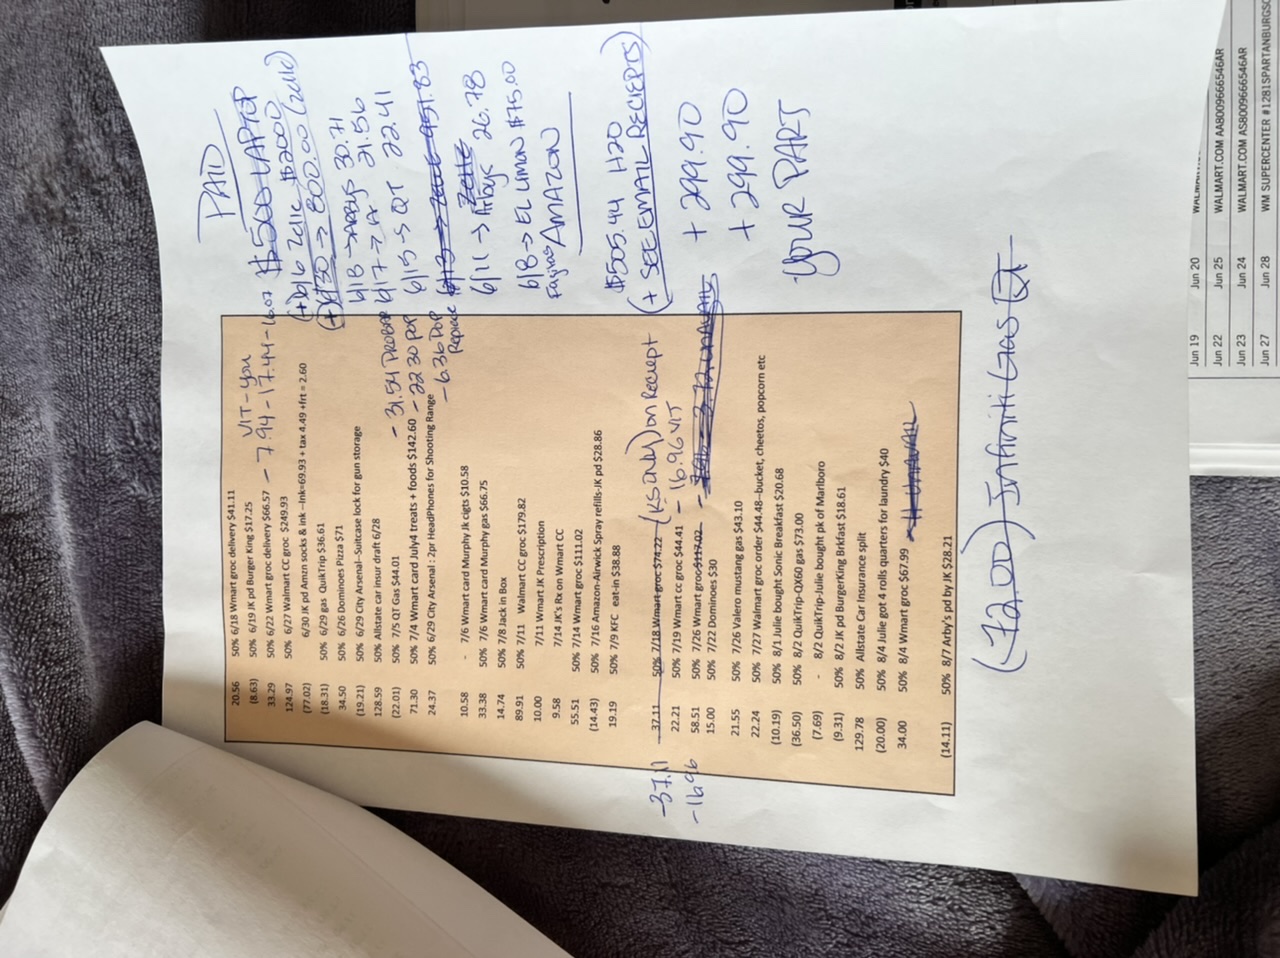 20.56 50% 6/18 Wmart groc delivery $41.11
(8.63) 50% 6/19 JK pd Burger King $17.25
33.29 50% 6/22 Wmart groc delivery $66.57
124.97 50% 6/27 Walmart CC groc $249.93
(77.02) 6/30 JK pd Amzn socks & ink --Ink=69.93 + tax 4.49 +frt = 2.60
(18.31) 50% 6/29 gas QuikTrip $36.61
34.50 50% 6/26 Dominoes Pizza $71
(19.21) 50% 6/29 City Arsenal--Suitcase lock for gun storage
128.59 50% Allstate car insur draft 6/28
(22.01) 50% 7/5 QT Gas $44.01
71.30 50% 7/4 Wmart card July4 treats + foods $142.60
24.37 50% 6/29 City Arsenal : 2pr HeadPhones for Shooting Range
10.58 - 7/6 Wmart card Murphy Jk cigts $10.58
33.38 50% 7/6 Wmart card Murphy gas $66.75
14.74 50% 7/8 Jack in Box
89.91 50% 7/11 Walmart CC groc $179.82
10.00 7/11 Wmart JK Prescription
9.58 7/14 JK's Rx on Wmart CC
55.51 50% 7/14 Wmart groc $111.02
(14.43) 50% 7/16 Amazon-Airwick Spray refills-JK pd $28.86
19.19 50% 7/9 KFC eat-in $38.88
37.11 50% 7/18 Wmart groc $74.22
22.21 50% 7/19 Wmart cc groc $44.41
58.51 50% 7/26 Wmart groc $117.02
15.00 50% 7/22 Dominoes $30
21.55 50% 7/26 Valero mustang gas $43.10
22.24 50% 7/27 Walmart groc order $44.48--bucket, cheetos, popcorn etc
(10.19) 50% 8/1 Julie bought Sonic Breakfast $20.68
(36.50) 50% 8/2 QuikTrip-QX60 gas $73.00
(7.69) - 8/2 QuikTrip-Julie bought pk of Marlboro
(9.31) 50% 8/2 JK pd BurgerKing Brkfast $18.61
129.78 50% Allstate Car Insurance split
(20.00) 50% 8/4 Julie got 4 rolls quarters for laundry $40
34.00 50% 8/4 Wmart groc $67.99
(14.11) 50% 8/7 Arby's pd by JK $28.21
VIT - you
- 7.94 - 17.44 - 16.07
- 22.30 POP
- 6.36 POP
Replace
on Reciept
- 16.96 VIT
-37.11
-16.96
PAID
$500 LAPTOP
(+) 6/6 Zelle $2000
(+) 6/30 → 800.00 (Zelle)
6/18 → ARBYS 30.71
6/17 → 21.56
6/15 → QT 22.41
6/13 → Zelle 951.83
6/11 → Arbys 26.78
6/8 → EL LIMON $75.00
Fajitas
AMAZON
$505.44 H20
(+ SEE EMAIL RECIEPTS)
+ 299.90
+ 299.90
YOUR PART
(72.00) Infiniti Gas QT
Jun 19 Jun 20
Jun 22 Jun 25 WALMART.COM AA8009666546AR
Jun 23 Jun 24 WALMART.COM AS8009666546AR
Jun 27 Jun 28 WM SUPERCENTER #1281SPARTANBURGSC